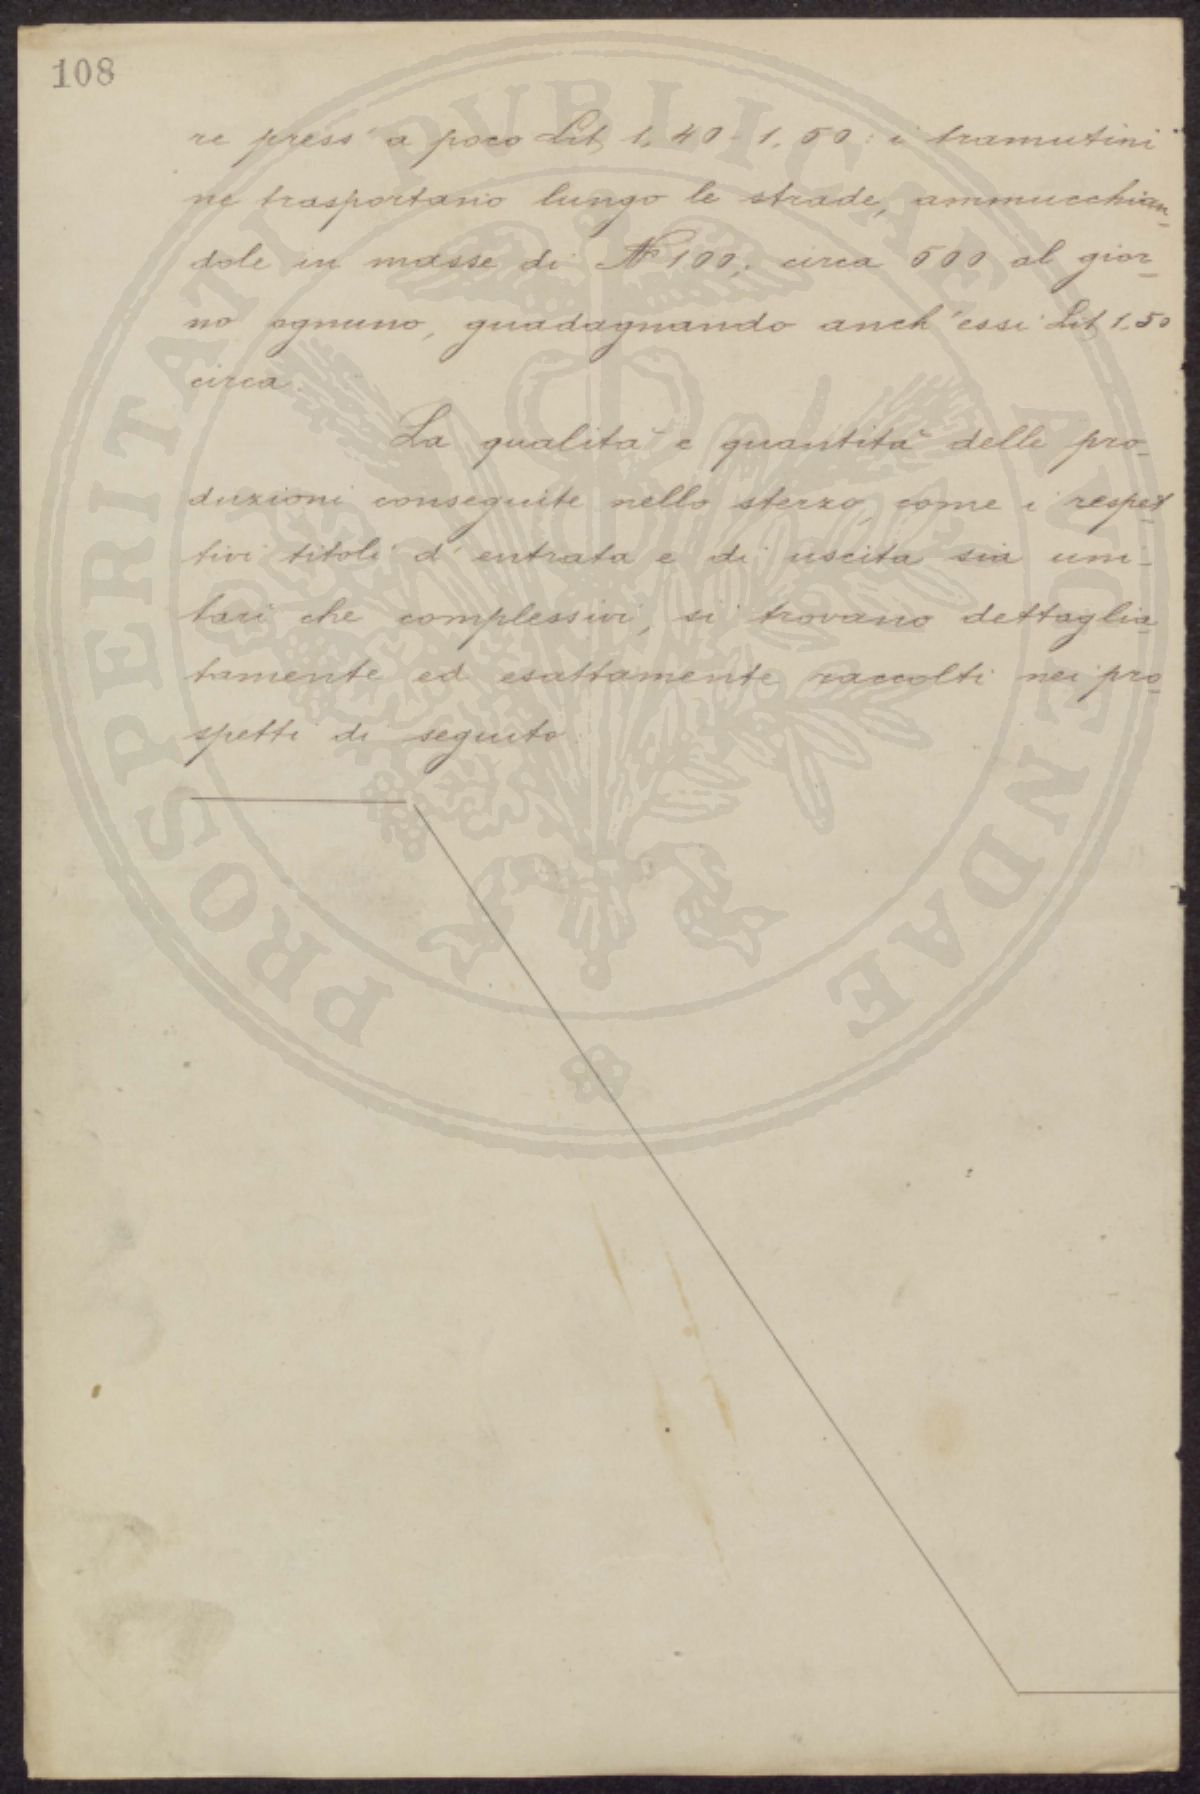 108
re press' a poco Lit 1,40-1,50: i "tramutini"
ne trasportano lungo le strade, ammucchian-
dole in masse di N° 100; circa 500 al gior-
no ognuno, guadagnando anch'essi Lit 1.50
circa.
La qualità e quantità delle pro-
duzioni conseguite nello sterzo, come i respet-
tivi titoli d'entrata e di uscita sia uni-
tari che complessivi, si trovano dettaglia-
tamente ed esattamente raccolti nei pro-
spetti di seguito.
PROSPERITATI PVBLICAE AVGENDAE